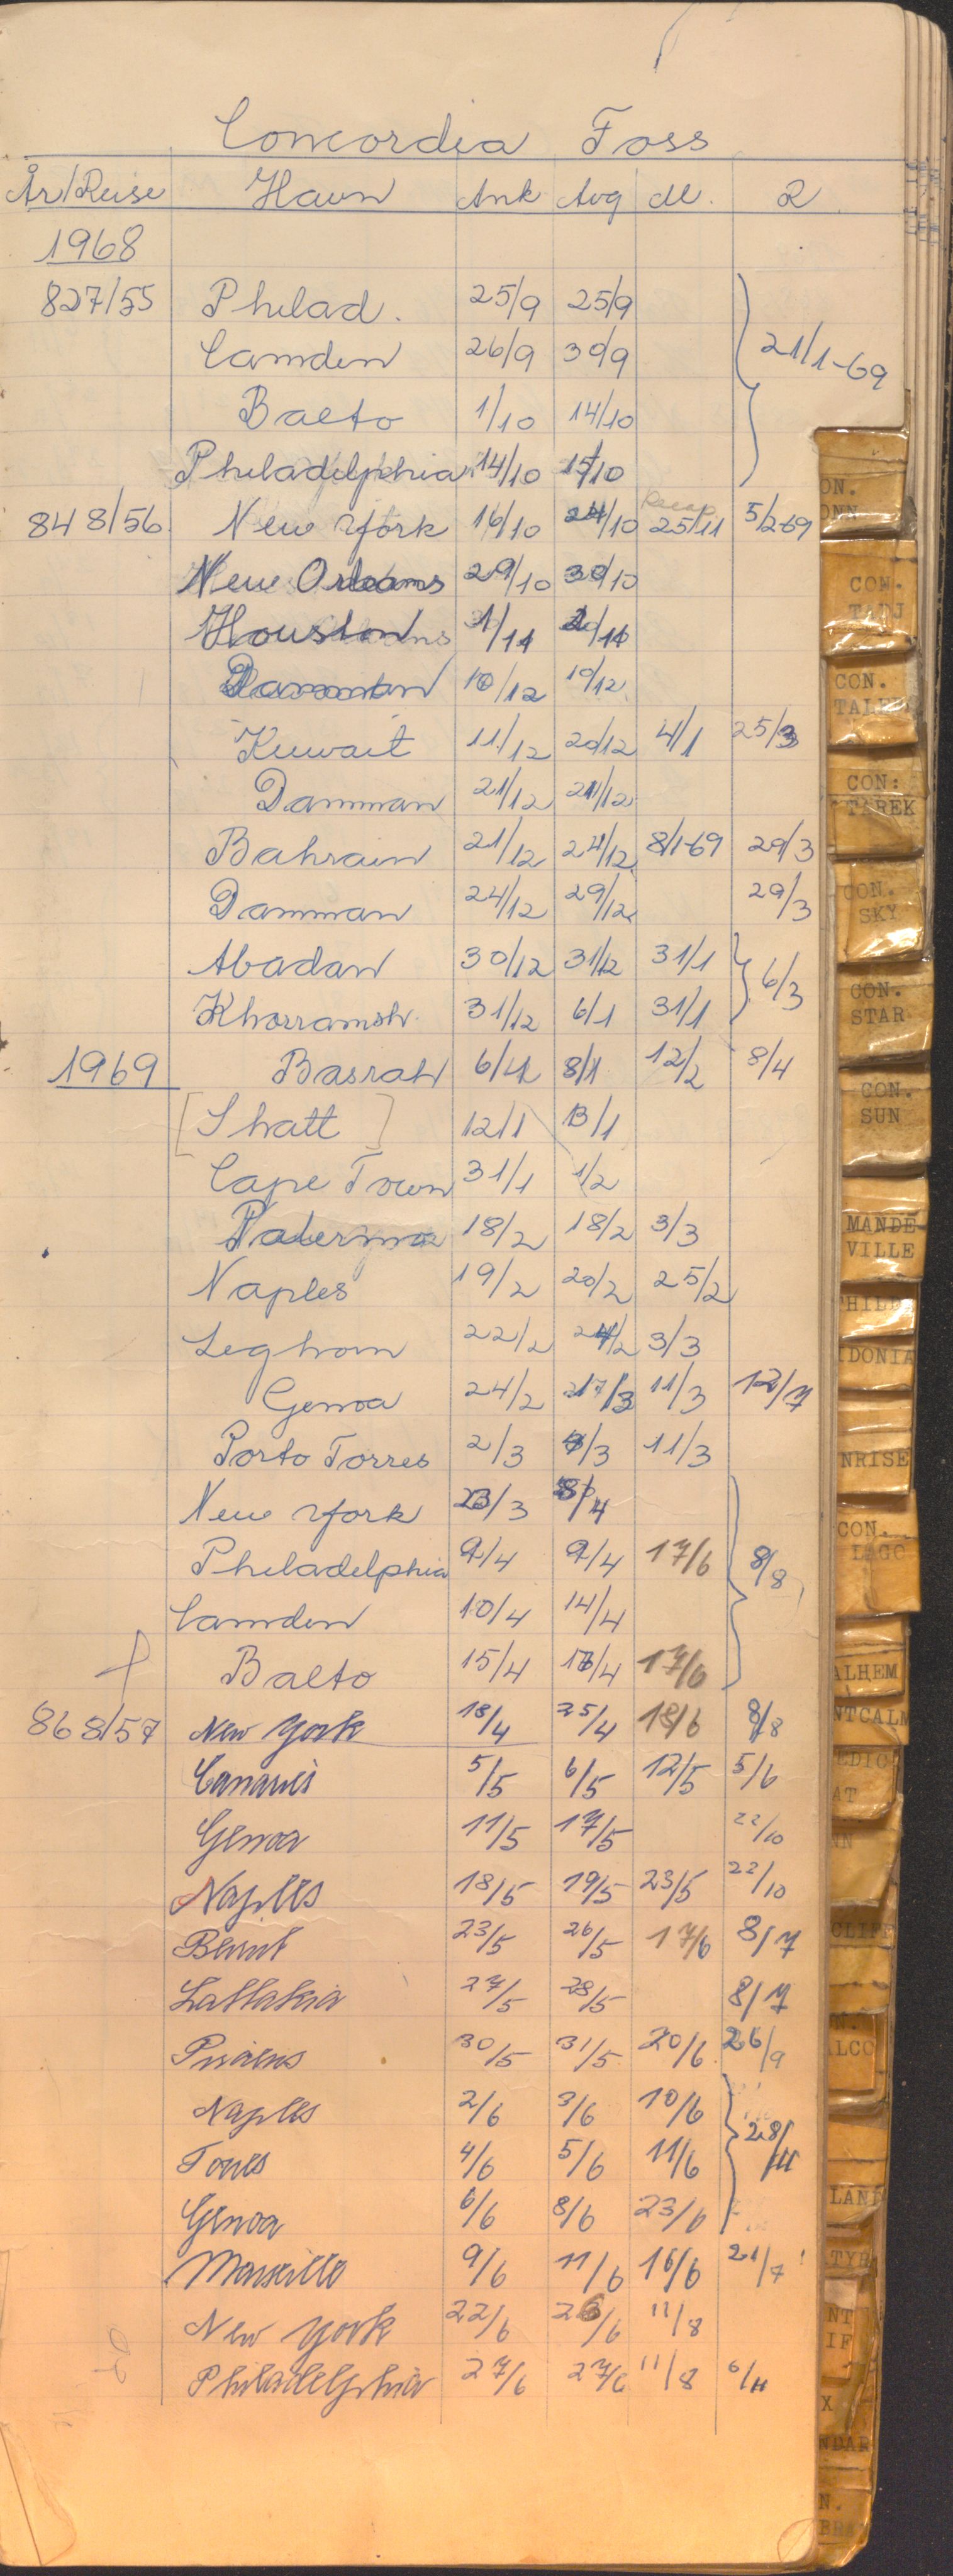 Concordia Foss
År/Reise Havn Ank Avg dl. R
1968
827/55 Philad. 25/9 25/9
Camden 26/9 30/9 21/1-69
Balto 1/10 14/10
Philadelphia 14/10 15/10
848/56 New York 16/10 24/10 25/11 5/2-69
New Orleans 29/10 30/10
Houston 1/11
Damman 10/12 10/12
Kuwait 11/12 20/12 4/1 25/3
Damman 21/12 21/12
Bahrain 21/12 24/12 8/1-69 29/3
Damman 24/12 29/12 29/3
Abadan 30/12 31/12 31/1 6/3
Khorramsh. 31/12 6/1 31/1
1969 Basrah 8/1 12/2 8/4
[Shatt] 12/1 13/1
Cape Town 31/1 1/2
Palermo 18/2 18/2 3/3
Naples 19/2 20/2 25/2
Leghorn 22/2 24/2 3/3
Genoa 24/2 11/3 12/7
Porto Torres 2/3 11/3
New York 23/3 8/4
Philadelphia 9/4 9/4 17/6 8/8
Camden 10/4 14/4
Balto 15/4 17/6
868/57 New York 18/4 25/4 18/6 8/8
Canaries 5/5 6/5 12/5 5/6
Genoa 11/5 17/5 22/10
Naples 18/5 19/5 23/5 22/10
Beirut 23/5 26/5 17/6 8/7
Lattakia 27/5 28/5 8/7
Piraeus 30/5 31/5 20/6 26/9
Naples 2/6 3/6 10/6 28/11
Torres 4/6 5/6 11/6
Genoa 6/6 8/6 23/6
Marseille 9/6 11/6 16/6 21/7
New York 22/6 11/8
Philadelphia 27/6 27/6 11/8 6/11
CON.
TADJ
CON.
CON:
TAREK
CON.
SKY
CON.
STAR
CON.
SUN
MANDE-
VILLE
IDONIA
NRISE
CON.
LAGO
ALHEM
NTCALM